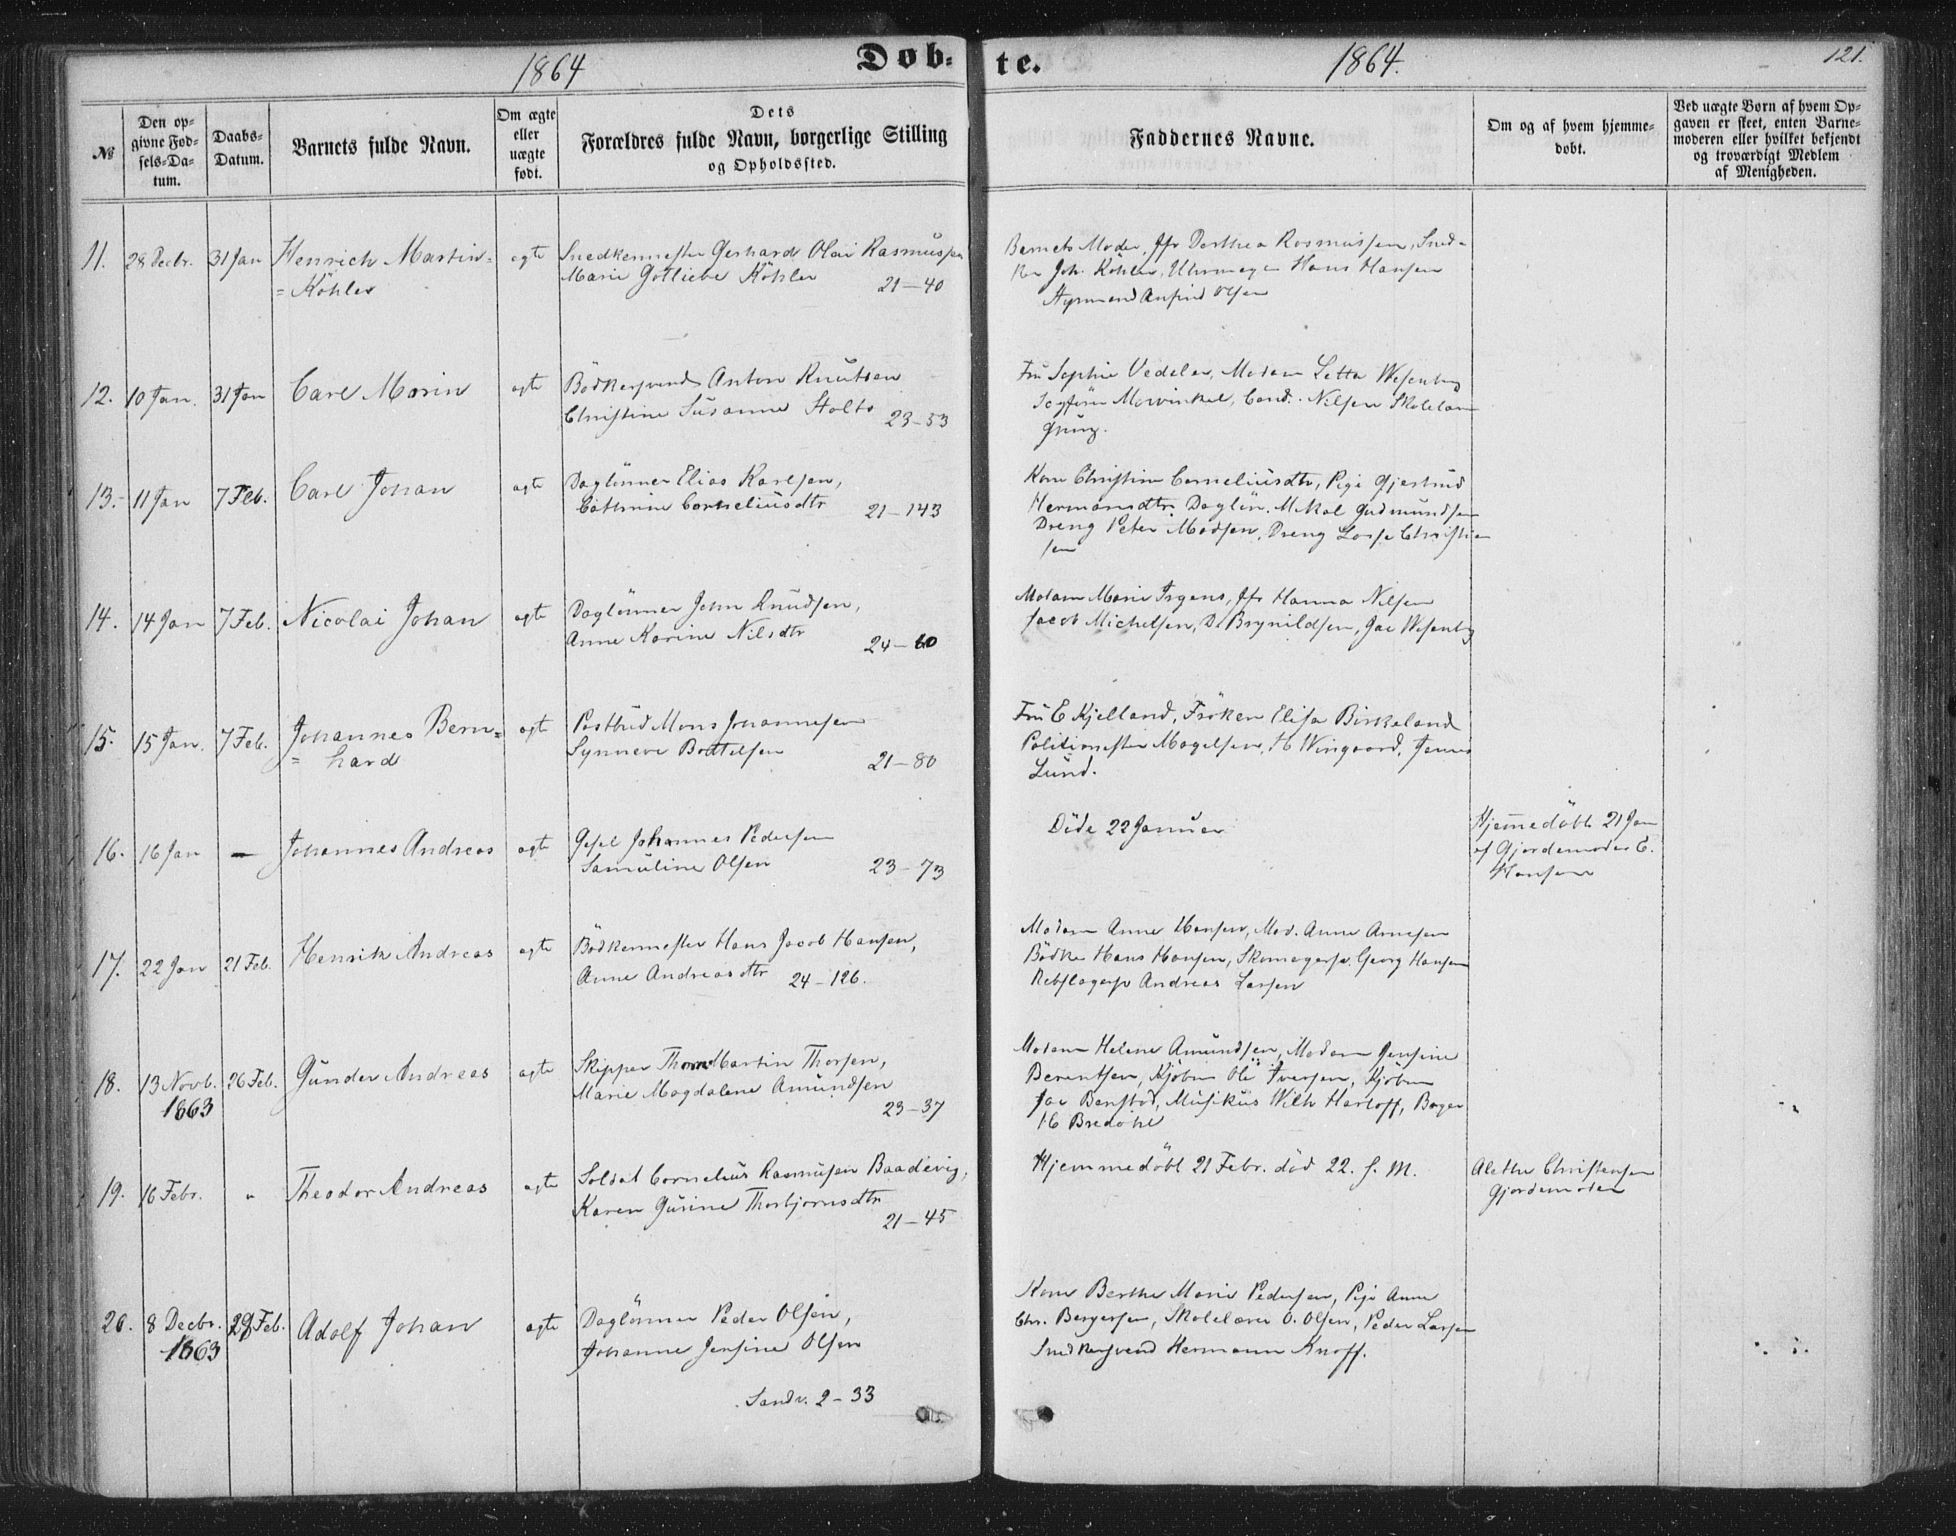 1864 Døb-
te. 1864. 121.
№
Den op-
givne Fød-
sels-Da-
tum.
Daabs-
Datum.
Barnets fulde Navn.
Om ægte
eller
uægte
født.
Dets
Forældres fulde Navn, borgerlige Stilling
og Opholdssted.
Faddernes Navne.
Om og af hvem hjemme-
døbt.
Ved uægte Børn af hvem Op-
gaven er skeet, enten Barne-
moderen eller hvilket bekjendt
og troværdigt Medlem
af Menigheden.
11. 28 Decbr. 31 Jan Henrich Martin=
=Köhler
ægte
Snedkermester Gerhard Olai Rasmussen
Marie Gotliebe Köhler 21-40
Barnets Moder, Jfr Dorthea Rasmussen, Sned-
ker Joh. Köhler, Uhrmager Hans Hansen
Olsen
12. 10 Jan. 31 Jan Carl Morin ægte
Bödkersvend Anton Knutsen
Christine Susanne Stolts 23-53
Fru Sophie Vedeler, Madam Letta Wesenberg
Mowinkel, Cand. Nilsen
13. 11 Jan 7 Feb. Carl Johan ægte
Daglönner Elias Karlsen,
Cathrine Corneliusdtr 21-143
Kone Christine Corneliusdtr, Pige Gjertrud
Hermansdtr. Daglön. Mikal Gudmundsen
Dreng Peter Madsen, Dreng Lasse Christian
sen
14. 14 Jan 7 Feb. Nicolai Johan ægte
Daglönner John Knudsen,
Anne Karine Nilsdtr 24-60
Madam Marie Irgens, Jfr Hanna Nilsen
Jacob Michelsen, D. Brynildsen, Jac Wesenberg
15. 15 Jan. 7 Feb. Johannes Bern=
= hard
ægte
Postbud Mons Johannesen
Synneve Bottelsen 21-80
Fru E Kjelland, Fröken Elisa Birkeland
Politimester Magelsen, H Wingaard, Jannes
Lund.
16. 16 Jan — Johannes Andreas ægte
Gesel Johannes Pedersen
Samuline Olsen 23-73
Döde 22 Januar
Hjemmedöbt 21 Jan
af Gjordemoder E.
Hansen
17. 22 Jan 21 Feb. Henrik Andreas ægte
Bödkermester Hans Jacob Hansen,
Anne Andreasdtr 24-126.
Madam Anne Hansen, Mad. Anne Arnesen
Bödker Hans Hansen, Skomagersv. Georg Hansen
Rebslagersv Andreas Larsen
18. 13 Novb.
1863
26 Feb. Gunder Andreas ægte
Skipper Thom Martin Thorsen,
Marie Magdalene Amundsen
23-37
Madam Helene Amundsen, Madam Jensine
Berentsen, Kjöbm Ole Iversen, Kjöbm
Jac Benstad, Musikus Wilh Hartoff, Bager
H Bredohl
19. 16 Febr. " Theodor Andreas ægte
Soldat Cornelius Rasmusen Baadevig,
Karen Gurine Thorbjornsdtr
21-45
Hjemmedöbt 21 Febr. död 22. s. M.
Alethe Christensen
Gjordemoder
20. 8 Decbr.
1863
28 Feb. Adolf Johan ægte
Daglönner Peder Olsen,
Johanne Jensine Olsen
Sandv. 2-33
Kone Berthe Marie Pedersen, Pige Anne
Chr. Bergersen, Skolelærer O. Olsen, Peder Larsen
Snedkersvend Hermann Knoff.